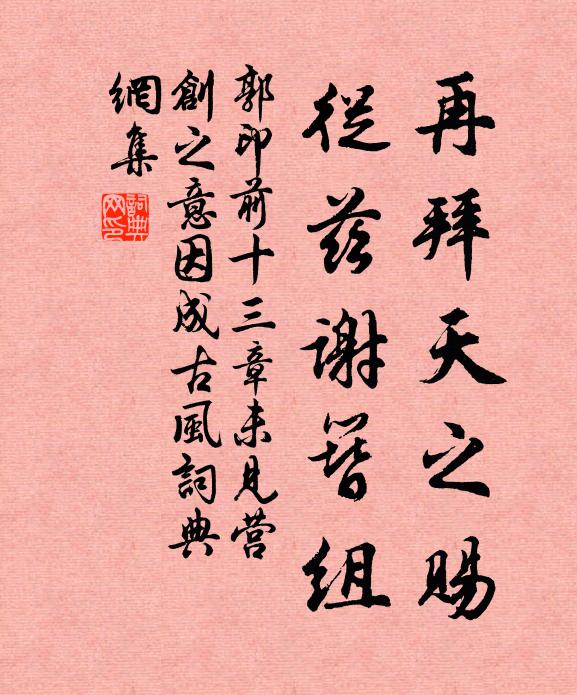 再拜天之賜
從茲謝簪組
郭印前十三章未見营
創之意因成古風詞典
網集
詞典
网印